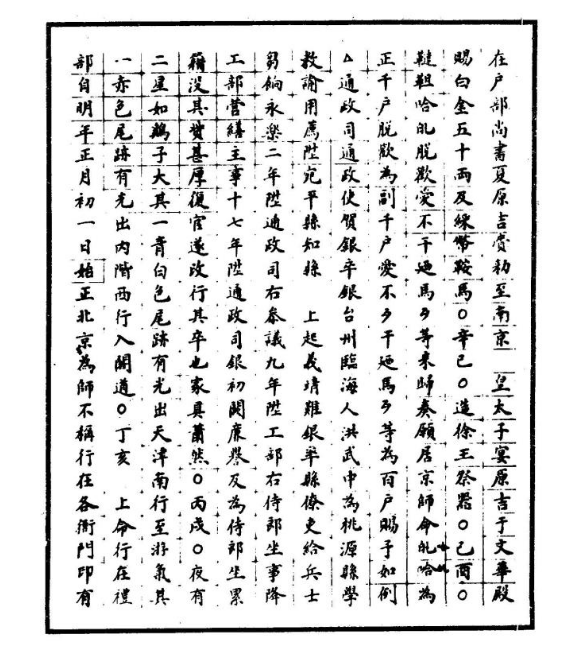 在户部尚書夏原吉賫勑至南京 皇太子宴原吉于文華殿
賜白金五十两及綵幣鞍馬○辛巳○造徐王祭器○己酉○
韃靼哈脱歡愛不干廼馬歹等來歸奏願居京師命哈為
正千户脱歡為副千户愛不歹干廼馬歹等為百户賜予如例
△通政司通政使賀銀卒銀台州臨海人洪武中為桃源縣學
教諭用薦陞宛平縣知縣 上起義靖難銀率縣僚吏給兵士
芻餉永樂二年陞通政司右叅議九年陞工部右侍郎坐事降
工部營繕主事十七年陞通政司銀初闕廉譽及為侍郎坐累
籍没其貲甚厚復官遂改行其卒也家具蕭然○丙戌○夜有
二星如鷄子大其一青白色尾跡有光出天津南行至游氣其
一赤色尾跡有光出内階西行入閣道○丁亥 上命行在禮
部自明年正月初一日始正北京為師不稱行在各衙門印有